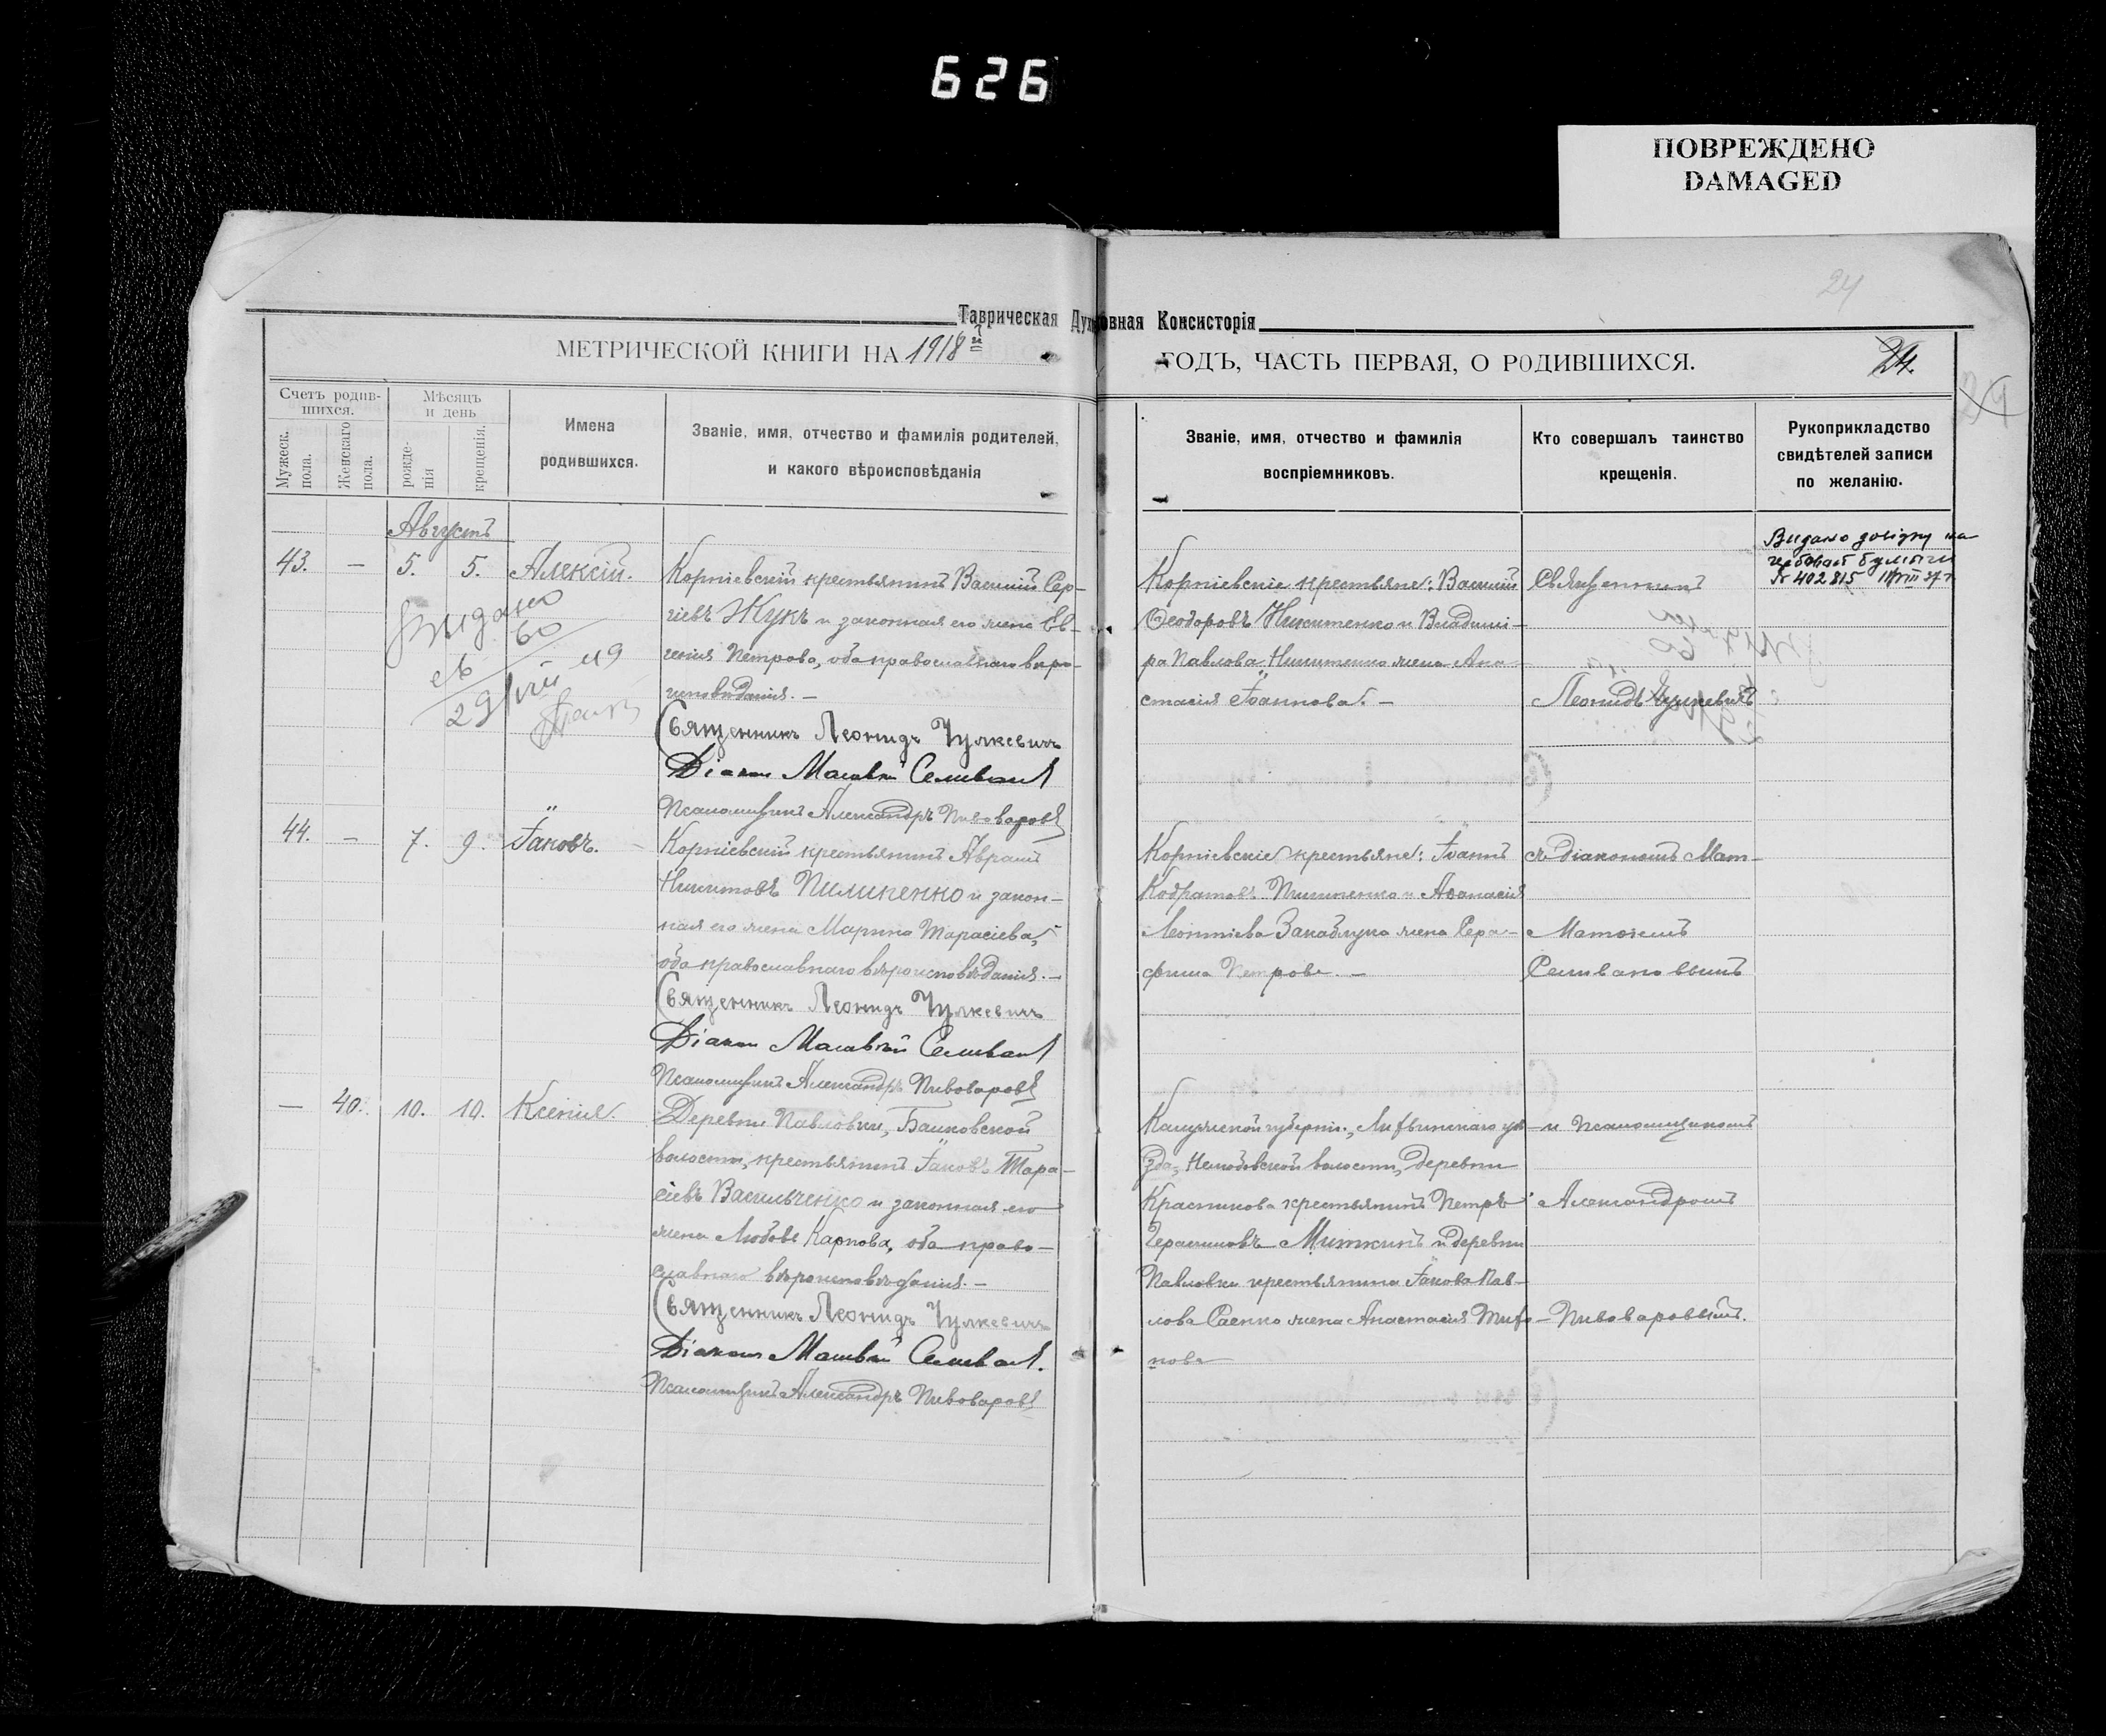 626
ПОВРЕЖДЕНО
DAMAGED
24
Таврическая Духовная Консисторія
МЕТРИЧЕСКОЙ КНИГИ НА 1918й
ГОДЪ, ЧАСТЬ ПЕРВАЯ, О РОДИВШИХСЯ.
24.
24
Счетъ родив-
шихся.
Мужеск.
пола.
Женскаго
пола.
Мѣсяцъ
и день
рожде-
нія
крещенія.
Имена
родившихся.
Званіе, имя, отчество и фамилія родителей,
и какого вѣроисповѣданія
Званіе, имя, отчество и фамилія
воспріемниковъ.
Кто совершалъ таинство
крещенія.
Рукоприкладство
свидѣтелей записи
по желанію.
Августъ
43. — 5. 5. Алексій.
Корніевскій крестьянинъ Василій Сер-
гіевъ Жукъ и законная его жена Ев-
генія Петрова, оба православнаго вѣро-
исповѣданія. —
Священникъ Леонидъ Чулкевичъ
Діаконъ Матвѣй Селиванов
Псаломщикъ Александръ Пивоваровъ
Корніевскіе крестьяне: Василій
Ѳеодоровъ Никитенко и Владими-
ра Павлова Никитенко жена Ана-
стасія Іоаннова. —
Священникъ
Леонидъ Чулкевичъ
Видано довідку на
гербовай бумаги
№ 402815
Видано
60
29 май 49
44. — 7. 9. Іаковъ.
Корніевскій крестьянинъ Авраамъ
Никитовъ Пилипенко и закон-
ная его жена Марина Тарасіева,
оба православнаго вѣроисповѣданія. —
Священникъ Леонидъ Чулкевичъ
Діаконъ Матвѣй Селиванов
Псаломщикъ Александръ Пивоваровъ
Корніевскіе крестьяне: Іоаннъ
Кодратовъ Пилипенко и Аѳанасія
Леонтіева Закаблука жена Сера-
фима Петрова. —
съ діакономъ Мат-
Матѳіемъ
Селивановымъ
— 40. 10. 10. Ксенія.
Деревни Павловки, Балковской
волости, крестьянинъ Іаковъ Тара-
сіевъ Васильченко и законная его
жена Любовь Карпова, оба право-
славнаго вѣроисповѣданія. —
Священникъ Леонидъ Чулкевичъ
Діаконъ Матвѣй Селиванов.
Псаломщикъ Александръ Пивоваровъ
Калужской губерніи, Лихвинскаго уѣ-
зда, волости, деревни
Красникова крестьянинъ Петръ
Герасимовъ Миткинъ и деревни
Павловки крестьянина Іакова Пав-
лова Саенко жена Анастасія
нова
и псаломщикомъ
Александромъ
Пивоваровымъ.